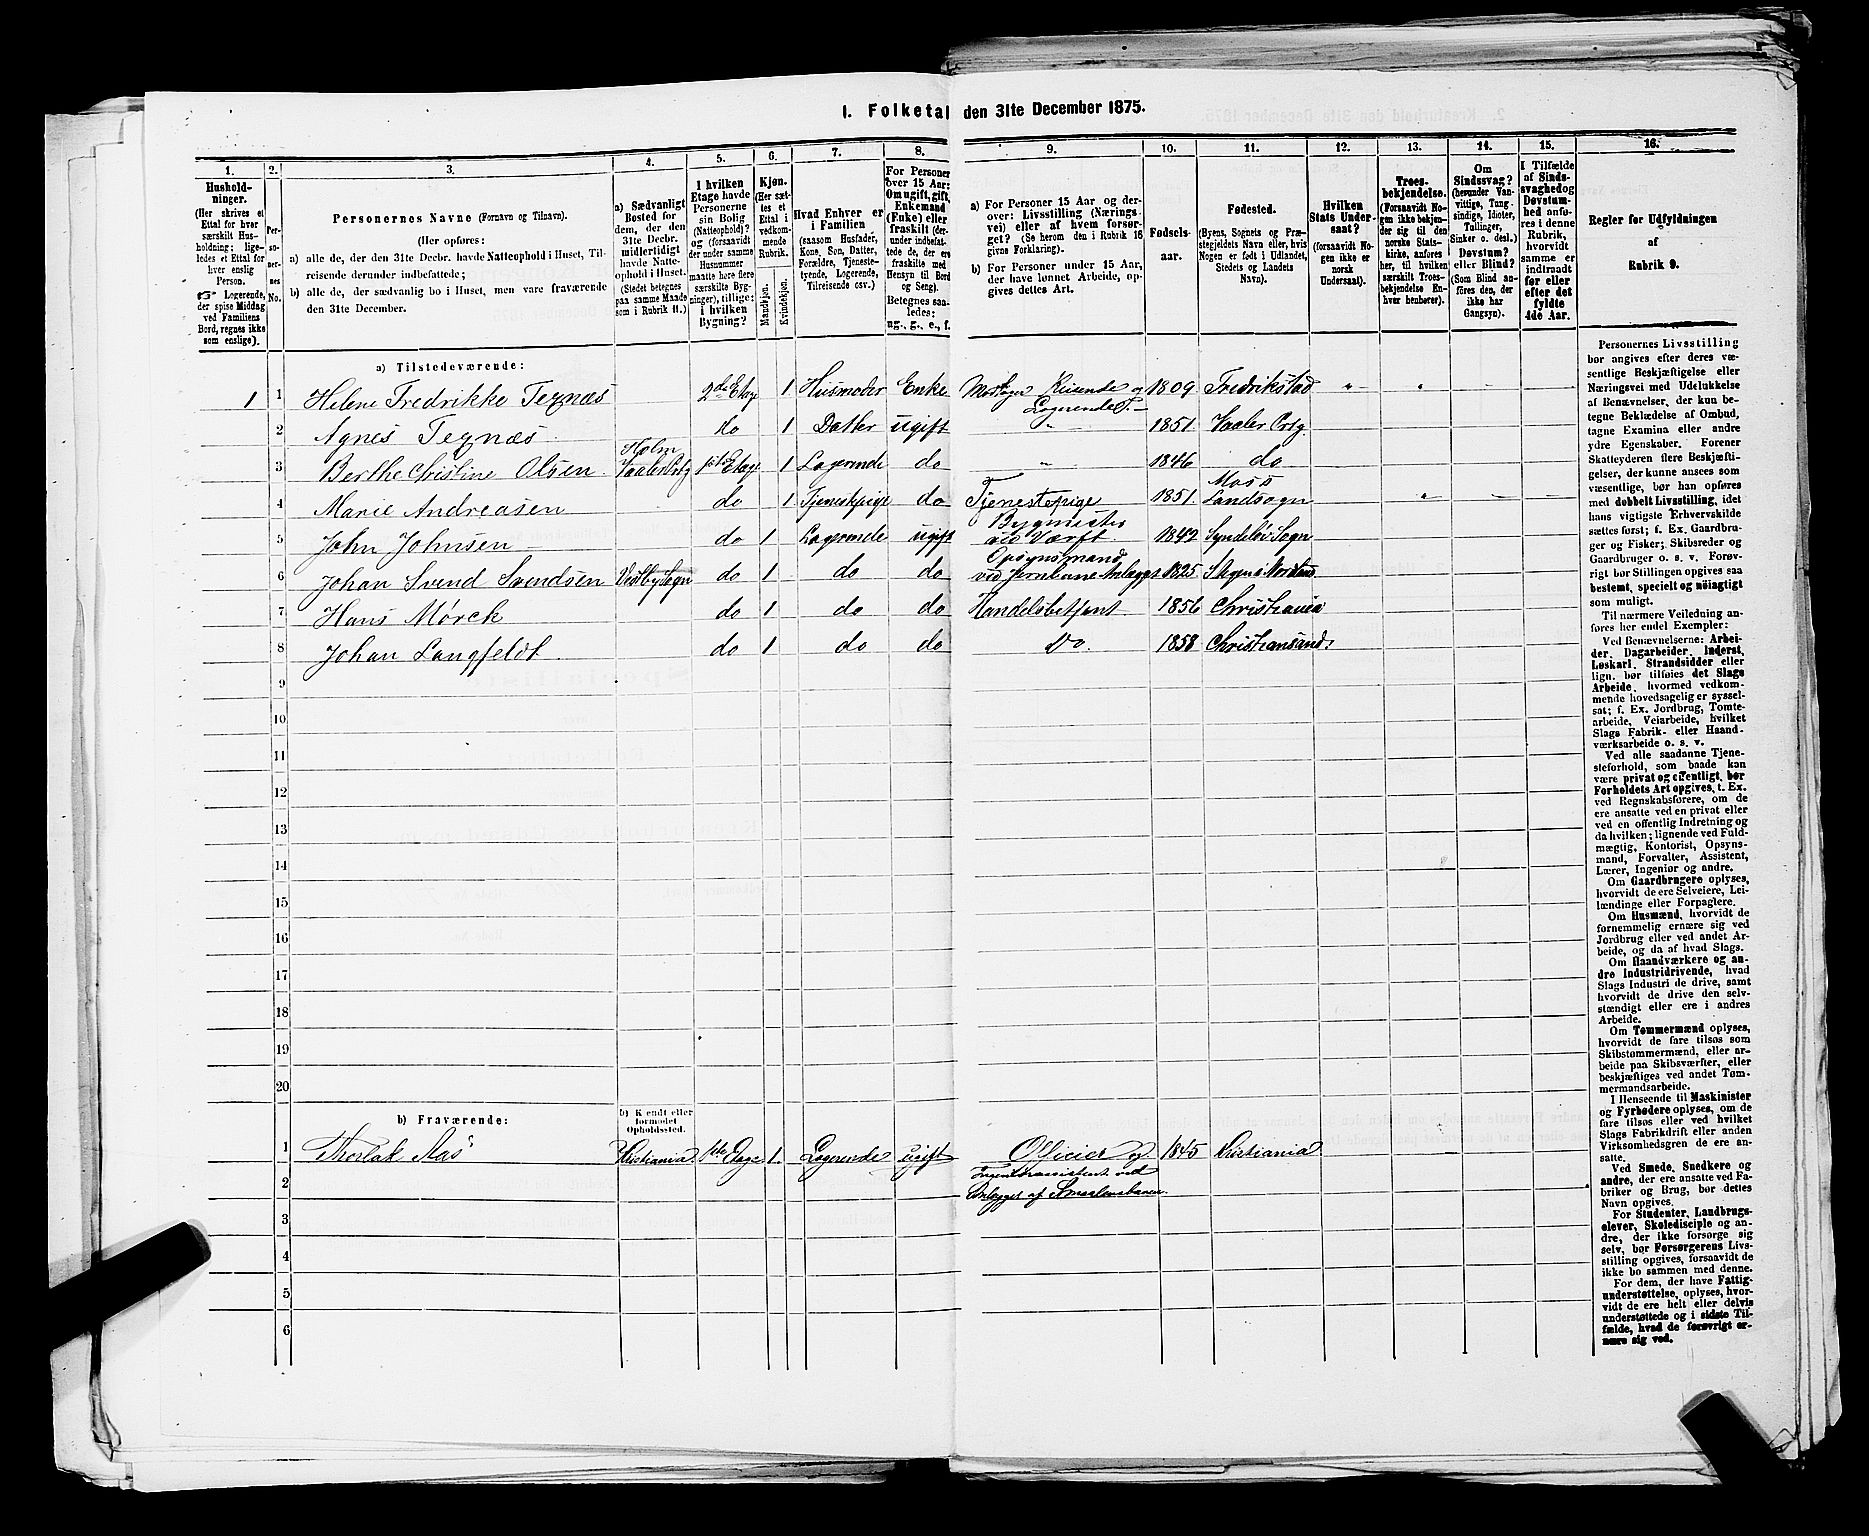 1. Folketal den 31te December 1875.
1. 2. 3. 4. 5. 6. 7. 8. 9. 10. 11. 12. 13. 14. 15. 16.
Hushold-
ninger.
(Her skrives et
Ettal for hver
særskilt Hus-
holdning; lige-
ledes et Ettal for
hver enslig
Person.
☞ Logerende,
der spise Middag
ved Familiens
Bord, regnes ikke
som enslige).
Per-
so-
ner-
nes
No.
Personernes Navne (Fornavn og Tilnavn).
(Her opføres:
a) alle de, der den 31te Decbr. havde Natteophold i Huset, Til-
reisende derunder indbefattede;
b) alle de, der sædvanlig bo i Huset, men vare fraværende
den 31te December.
a) Sædvanligt
Bosted for
dem, der den
31te Decbr.
midlertidigt
havde Natte-
ophold i Huset.
(Stedet betegnes
paa samme Maade
som i Rubrik 11.)
I hvilken
Etage havde
Personerne
sin Bolig
(Natteophold)?
og (forsaavidt
der under samme
Husnummer
maatte høre flere
særskilte Byg-
ninger), tillige:
i hvilken
Bygning?
Kjøn.
(Her sæt-
tes et
Ettal i
vedkom-
mende
Rubrik.
Mandkjøn.
Kvindekjøn.
Hvad Enhver er
i Familien
(saasom Husfader,
Kone, Søn, Datter,
Forældre, Tjeneste-
tyende, Logerende,
Tilreisende osv.)
For Personer
over 15 Aar:
Om ugift, gift,
Enkemand
(Enke) eller
fraskilt (der-
under indbefat-
tede de, der ere
fraskilte med
Hensyn til Bord
og Seng).
Betegnes saa-
ledes:
ug., g., e., f.
a) For Personer 15 Aar og der-
over: Livsstilling (Nærings-
vei) eller af hvem forsør-
get? (Se herom den i Rubrik 16
givne Forklaring).
b) For Personer under 15 Aar,
der have lønnet Arbeide, op-
gives dettes Art.
Fødsels-
aar.
Fødested.
(Byens, Sognets og Præ-
stegjeldets Navn eller, hvis
Nogen er født i Udlandet,
Stedets og Landets
Navn).
Hvilken
Stats Under-
saat?
(forsaavidt No-
gen ikke er
norsk
Undersaat).
Troes-
bekjendelse.
(Forsaavidt No-
gen ikke bekjen-
der sig til den
norske Stats-
kirke, anføres
her, til hvilken
særskilt Troes-
bekjendelse En-
hver henhører).
Om
Sindssvag?
(herunder Van-
vittige, Tung-
sindige, Idioter,
Tullinger,
Sinker o. desl.)
Døvstum?
eller Blind?
(Som Blind an-
føres den, der
ikke har
Gangsyn).
I Tilfælde
af Sinds-
svaghed og
Døvstum-
hed anfø-
res i denne
Rubrik,
hvorvidt
samme er
indtraadt
før eller
efter det
fyldte
4de Aar.
Regler for Udfyldningen
af
Rubrik 9.
a) Tilstedeværende:
1 1 Helene Fredrikke Tegnæs 2de Etage 1 Husmoder Enke Modtager Reisende og Logerende 1809 Fredrikstad
2 Agnes Tegnæs do 1 Datter ugift 1851 Vaaler Prtg.
3 Berthe Christine Olsen Holm Vaaler Prtg 1ste Etage 1 Logerende do 1846 do
4 Marie Andreasen do 1 Tjenestpige do Tjenestepige 1851 Moss Landsogn
5 John Johnsen do 1 Logerende ugift Bygmester Værft 1842 Sogn
6 Johan Svend Svendsen Vestby Sogn do 1 do do Opsynsmand ved Jernbane Anlægget 1825
7 Hans Mørck do 1 do do Handelsbetjent 1856 Christiania
8 Johan Langfeldt do 1 do do Do 1858 Christiansand.
9
10
11
12
13
14
15
16
17
18
19
20
b) Fraværende:
b) Kendt eller
formodet
Opholdssted.
1 Thorlak Aas Kristiania 1ste Etage 1. Logerende ugift Officier og 1845 Kristiania
2 Ingeniørassistent ved
Anlægget af Smaalensbanen.
3
4
5
6
Personernes Livsstilling
bør angives efter deres væ-
sentlige Beskjæftigelse eller
Næringsvei med Udelukkelse
af Benævnelser, der kun be-
tegne Beklædelse af Ombud,
tagne Examina eller andre
ydre Egenskaber. Forener
Skatteyderen flere Beskjæfti-
gelser, der kunne ansees som
væsentlige, bør han opføres
med dobbelt Livsstilling, idet
hans vigtigste Erhvervskilde
sættes først; f. Ex. Gaardbru-
ger og Fisker; Skibsreder og
Gaardbruger o. s. v. Forøv-
rigt bør Stillingen opgives saa
bestemt, specielt og nøiagtigt
som muligt.
Til nærmere Veiledning an-
føres her endel Exempler:
Ved Benævnelserne: Arbei-
der, Dagarbeider, Inderst,
Løskarl, Strandsidder eller
lign. bør tilføies det Slags
Arbeide, hvormed vedkom-
mende hovedsagelig er syssel-
sat; f. Ex. Jordbrug, Tomte-
arbeide, Veiarbeide, hvilket
Slags Fabrik- eller Haand-
værksarbeide o. s. v.
Ved alle saadanne Tjene-
steforhold, som baade kan
være privat og offentligt, bør
Forholdets Art opgives, t. Ex.
ved Regnskabsførere, om de
ere ansatte ved en privat eller
ved en offentlig Indretning og
da hvilken; lignende ved Fuld-
mægtig, Kontorist, Opsyns-
mand, Forvalter, Assistent,
Lærer, Ingeniør og andre.
Om Gaardbrugere oplyses,
hvorvidt de ere Selveiere, Lei-
lændinge eller Forpagtere.
Om Husmænd, hvorvidt de
fornemmelig ernære sig ved
Jordbrug eller ved andet Ar-
beide, og da af hvad Slags.
Om Haandværkere og an-
dre Industridrivende, hvad
Slags Industri de drive, samt
hvorvidt de drive den selv-
stændigt eller ere i andres
Arbeide.
Om Tømmermænd oplyses,
hvorvidt de fare tilsøs som
Skibstømmermænd, eller ar-
beide paa Skibsværfter, eller
beskjæftiges ved andet Tøm-
mermandsarbeide.
I Henseende til Maskinister
og Fyrbødere oplyses, om de
fare tilsøs eller ved hvilket
Slags Fabrikdrift eller anden
Virksomhedsgren de ere an-
satte.
Ved Smede, Snedkere og
andre, der ere ansatte ved Fa-
briker og Brug, bør dettes
Navn opgives.
For Studenter, Landbrugs-
elever, Skoledisciple og an-
dre, der ikke forsørge sig
selv, bør Forsørgerens Livs-
stilling opgives, forsaavidt de
ikke bo sammen med denne.
For dem, der have Fattig-
understøttelse, oplyses, hvor-
vidt de ere helt eller delvis
understøttede og i sidste Til-
fælde, hvad de forøvrigt er-
nære sig ved.